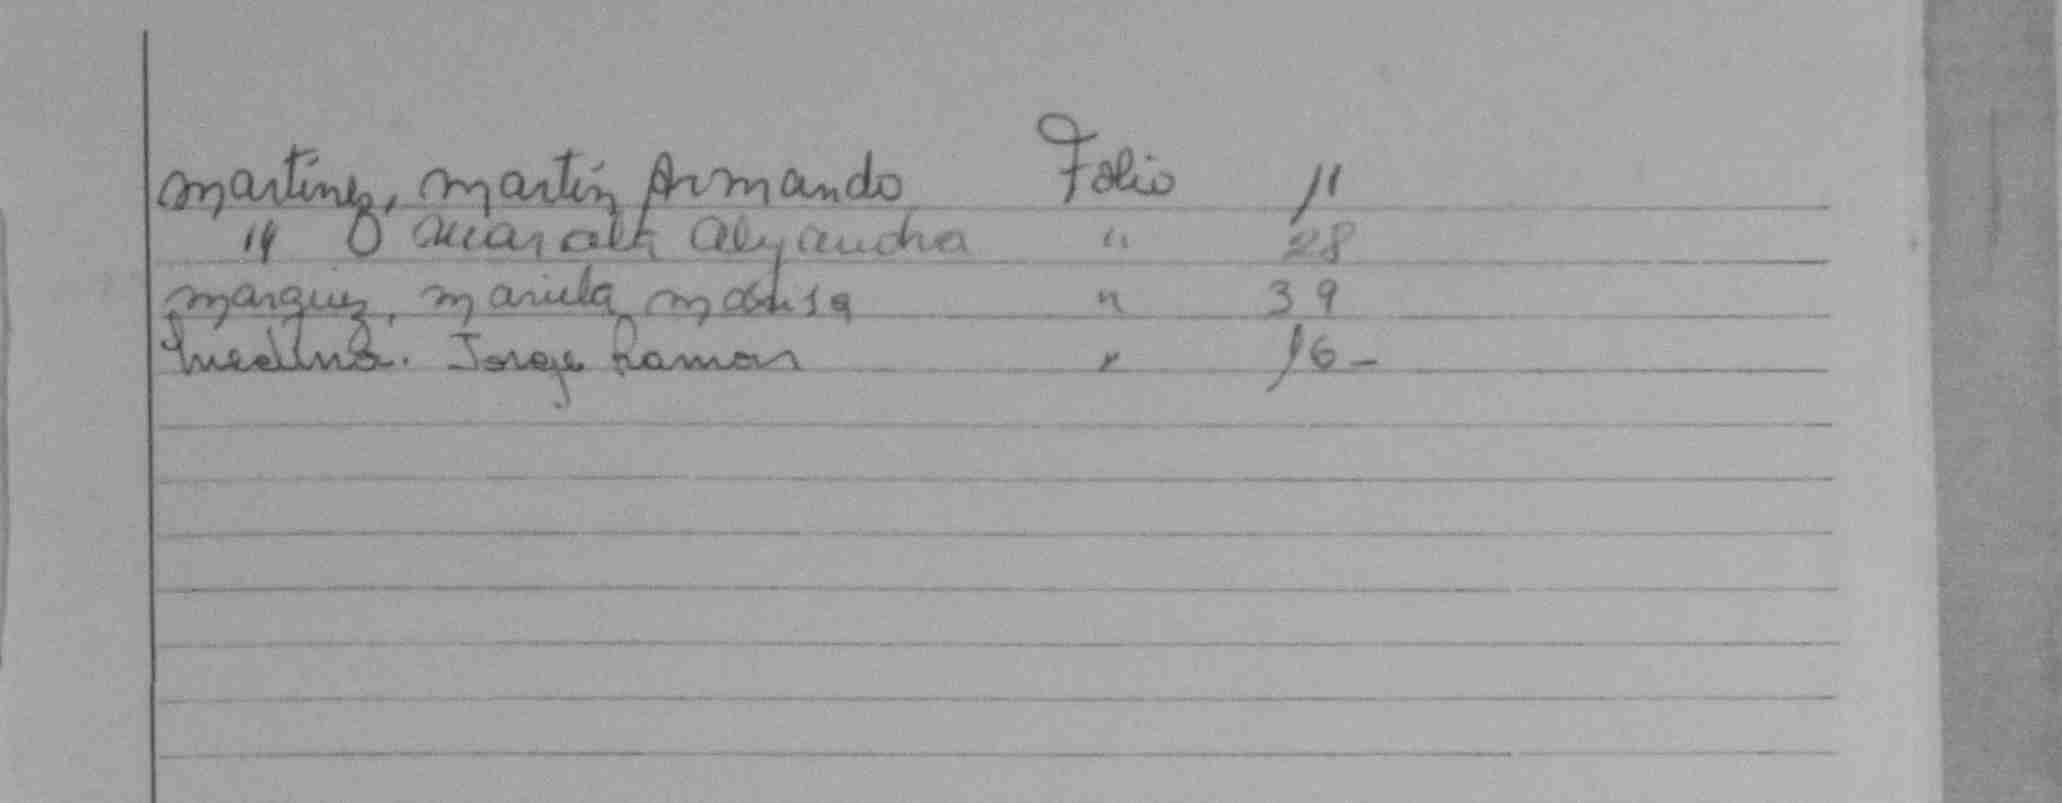 Martinez, Martin Armando Folio 11
" Alejandra " 28
Marquez, Mariela " 39
Medina. Jorge Ramon " 16-